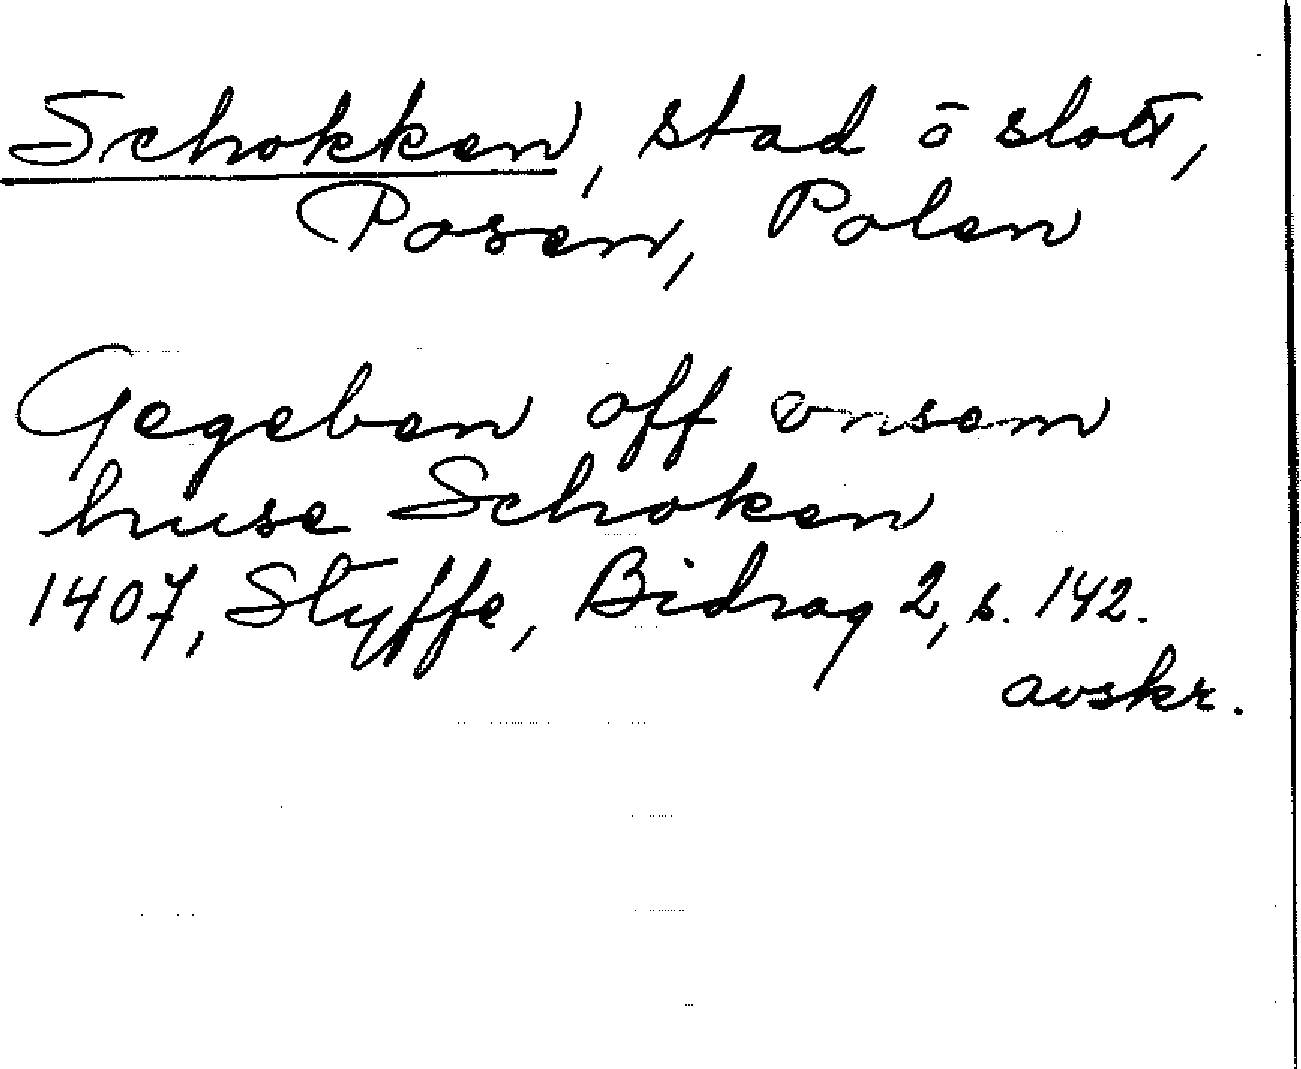 Schokken, stad o slott,
Posen, Polen
Gegeben off vnsem
huse Schoken
1407, Styffe, Bidrag 2, s. 142.
avskr.